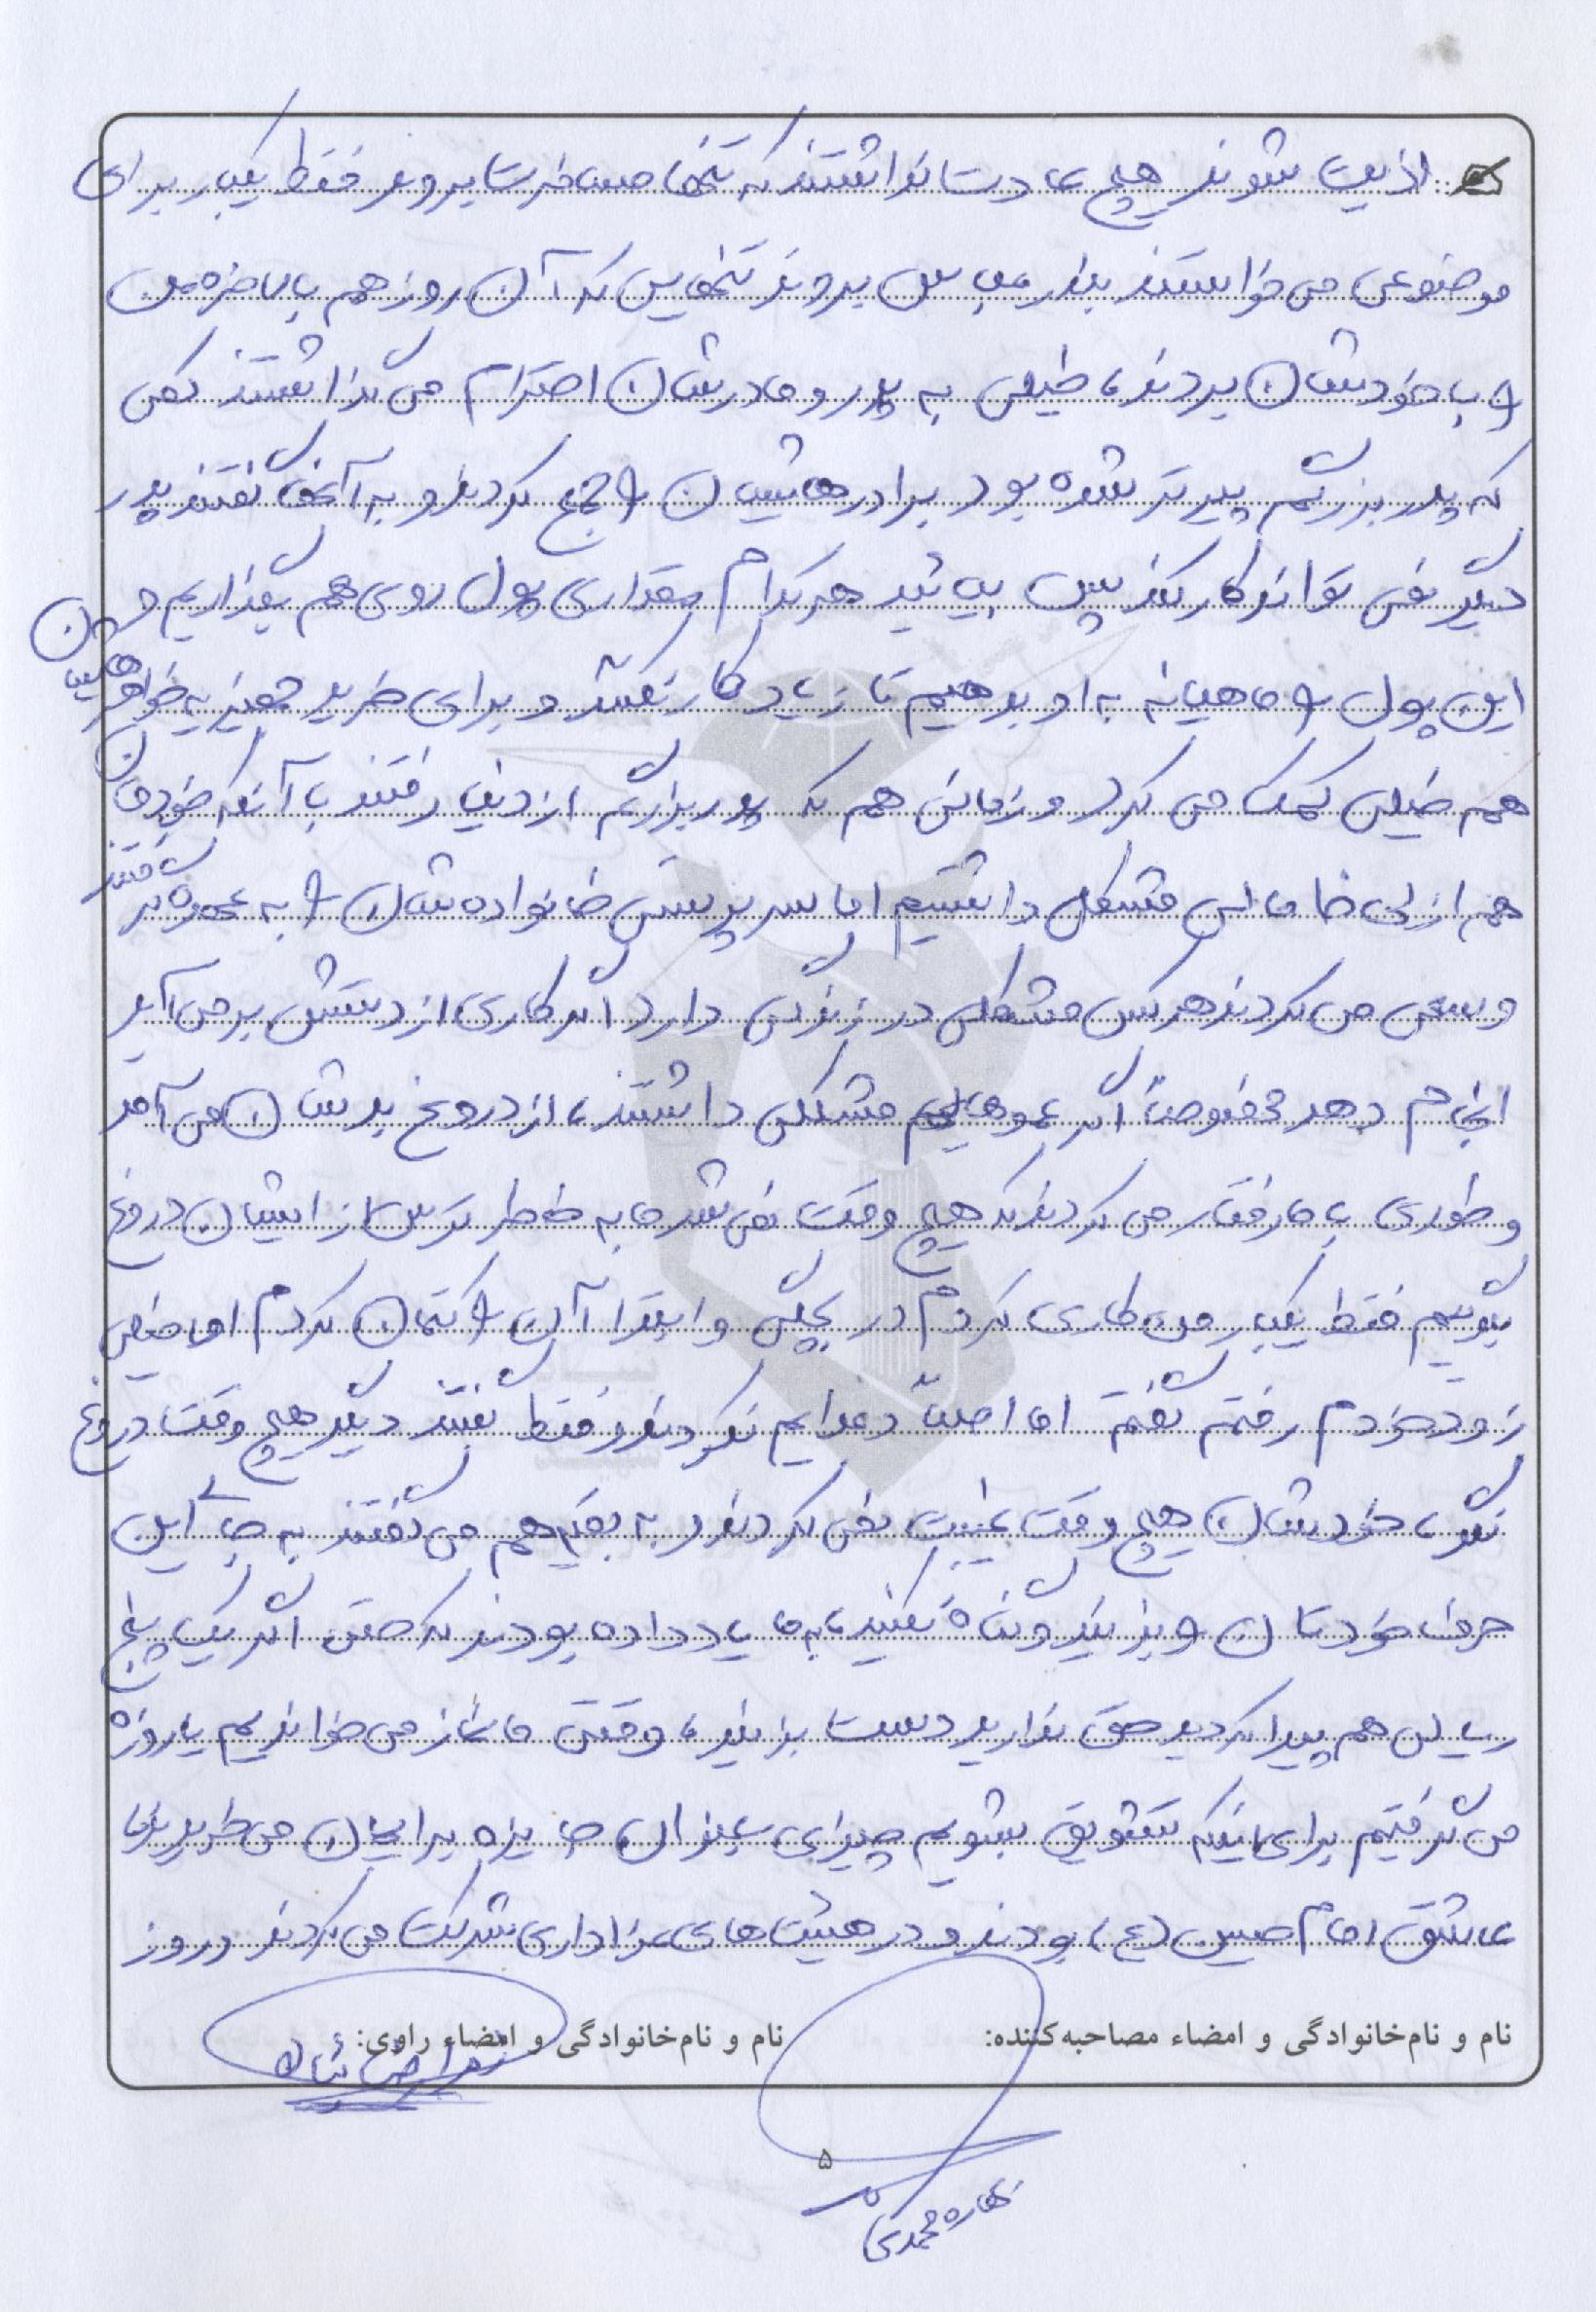 اذیت شوند هیچ عادت نداشتند که تنها مسافرت بروند فقط یکبار برای
موضوعی می خواستند بندرعباس بروند تنهایی که آن روز هم بالاخره من
را با خودشان بردند، خیلی به پدر و مادرشان احترام می گذاشتند زمانی
که پدربزرگم پیرتر شده بود برادرهایشان را جمع کردند و به آنها گفتند پدر
دیگر نمی تواند کار کند پس بیائید هر کدام مقداری پول روی هم بگذاریم و
این پول را ماهیانه به او بدهیم تا زیاد کار نکند و برای خرید جهیزیه خواهرهایشان
هم خیلی کمک می کرد و زمانی هم که پدربزرگم از دنیا رفتند با آنکه خودمان
هم از لحاظ مالی مشکل داشتیم اما سرپرستی خانواده شان را به عهده گرفتند
و سعی می کردند هر کس مشکلی در زندگی دارد اگر کاری از دستش بر می آید
انجام دهد مخصوصاً اگر عموهایم مشکلی داشتند، از دروغ بدشان می آمد
و طوری با ما رفتار می کردند که هیچ وقت نمی شد ما به خاطر ترس از ایشان دروغ
بگوییم فقط یکبار من کاری کردم در بچگی و ابتدا آن را کتمان کردم اما خیلی
زود خودم رفتم گفتم اما اصلاً دعوایم نکردند و فقط گفتند دیگر هیچ وقت دروغ
نگو، خودشان هیچ وقت غیبت نمی کردند و به بقیه هم می گفتند به جای این
حرف خودتان را بزنید و گناه نکنید، به ما یاد داده بودند که حتی اگر یک پنج
ریالی هم پیدا کردید حق ندارید دست بزنید، وقتی ما نماز می خواندیم یا روزه
می گرفتیم برای اینکه تشویق بشویم چیزی بعنوان جایزه برایمان می خریدند
عاشق امام حسین (ع) بودند و در هیئت های عزاداری شرکت می کردند و روز
نام و نام خانوادگی و امضاء مصاحبه کننده:
نام و نام خانوادگی و امضاء راوی:
۵
بهاره محمدی